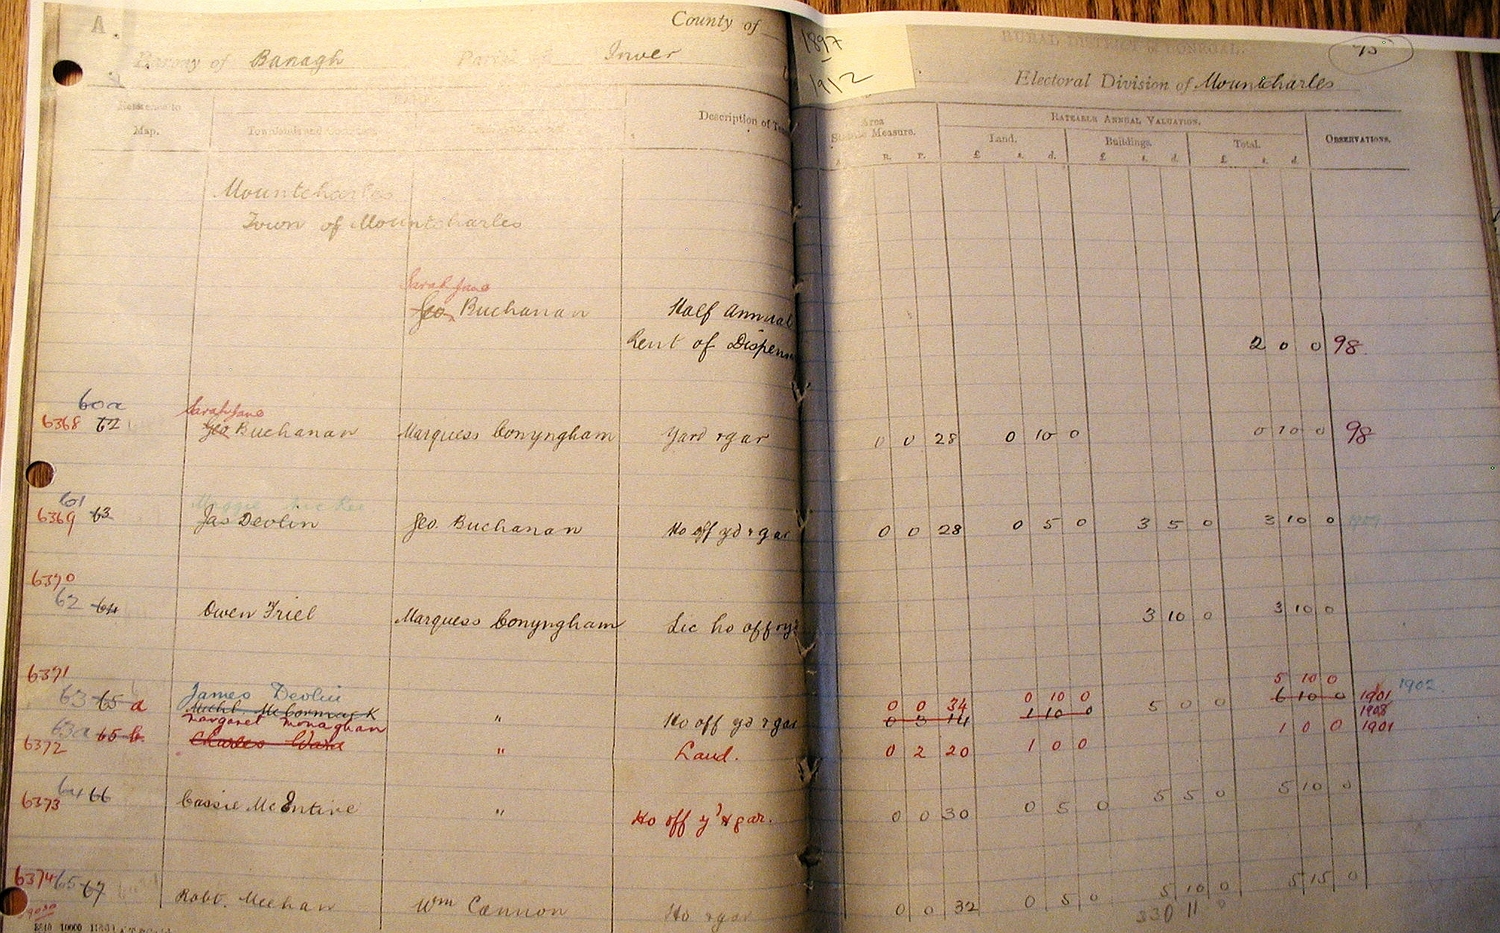 A.
County of
1897
1912
RURAL DISTRICT of DONEGAL.
75
Barony of Banagh Parish of Inver
Electoral Division of Mountcharles
Reference to Map.
Townlands and Occupiers.
Description of
Area
Measure.
R. P.
RATEABLE ANNUAL VALUATION.
Land. Buildings. Total.
£ s. d. £ s. d. £ s. d.
OBSERVATIONS.
Mountcharles
Town of Mountcharles
Sarah Jane
Geo Buchanan Half Annual
Rent of Dispen 2 0 0 98
60a Sarah Jane
6368 62 Geo Buchanan Marquess Conyngham Yard & gar 0 0 28 0 10 0 0 10 0 98
61 Maggie
6369 63 Jas Devlin Geo. Buchanan Ho off yd & gar 0 0 28 0 5 0 3 5 0 3 10 0
6370
62 64 Owen Friel Marquess Conyngham Lic ho off & yd 3 10 0 3 10 0
6371 5 10 0
63 65 a James Devlin 0 0 34 0 10 0 1901 1902
Michl. McCormack " Ho off yd & gar 0 3 14 1 10 0 5 0 0 6 10 0 1908
63a 65 b Margaret Monaghan 1 0 0 1901
6372 Charles Ward " Land. 0 2 20 1 0 0
64 66
6373 Cassie McEntire " Ho off yd & gar. 0 0 30 0 5 0 5 5 0 5 10 0
6374 65 67 Robt. Meehan Wm Cannon Ho & gar 0 0 32 0 5 0 5 10 0 5 15 0
330 11 0